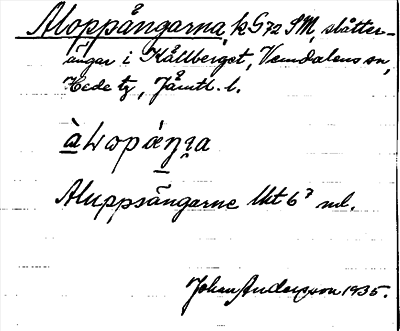 Aloppångarna, k G72 SM, slåtter-
ängar i Kållberget, Vemdalens sn,
Hede tg, Jämtl. l.
Aluppsängarne Ukt 6³ ml.
Johan Andersson 1935.